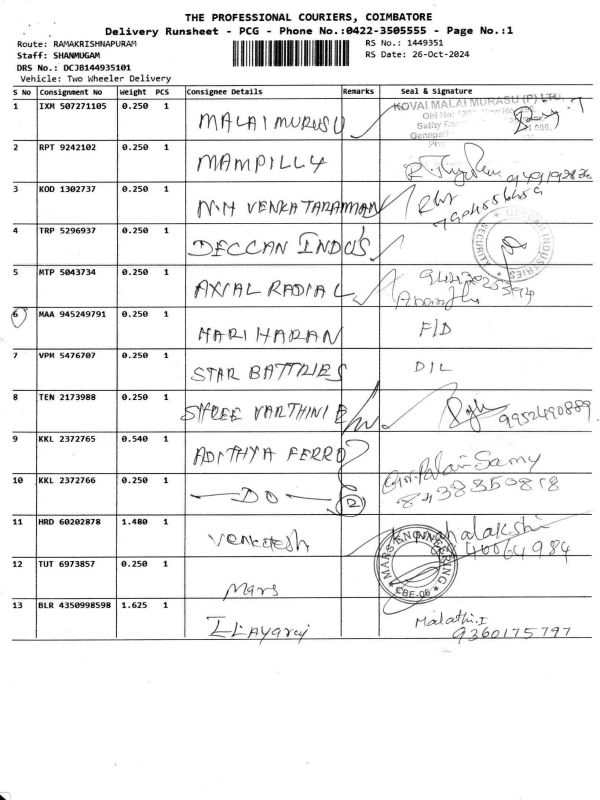 THE PROFESSIONAL COURIERS, COIMBATORE
Delivery Runsheet - PCG - Phone No.:0422-3505555 - Page No.:1
Route: RAMAKRISHNAPURAM
RS No.: 1449351
Staff: SHANMUGAM
RS Date: 26-Oct-2024
DRS No.: DCJB1449935101
Vehicle: Two Wheeler Delivery
S No Consignment No Weight PCS Consignee Details Remarks Seal & Signature
1 IXM 507271105 0.250 1 MALAI MURUSU
KOVAI MALAI MURASU (P) LTD
2 RPT 9242102 0.250 1 MAMPILLY
3 KOD 1302737 0.250 1 N.H VENKATARAMMAN
4 TRP 5296937 0.250 1 DECCAN INDUS
DECCAN INDUSTRIES SECURITY
5 MTP 5043734 0.250 1 AXIAL RADIAL
6 MAA 945249791 0.250 1 HARI HARAN F/D
7 VPM 5476707 0.250 1 STAR BATTRIES D/L
8 TEN 2173988 0.250 1 SHREE VARTHINI E 9952490889
9 KKL 2372765 0.540 1 ADITHYA FERRO
10 KKL 2372766 0.250 1 —DO— 2 8438350818
11 HRD 60202878 1.480 1 Venkatesh 40064984
12 TUT 6973857 0.250 1 Mars
MARS ENGINEERING CBE-06
13 BLR 4350998598 1.625 1 ILayaraj Malathi.I
9360175797